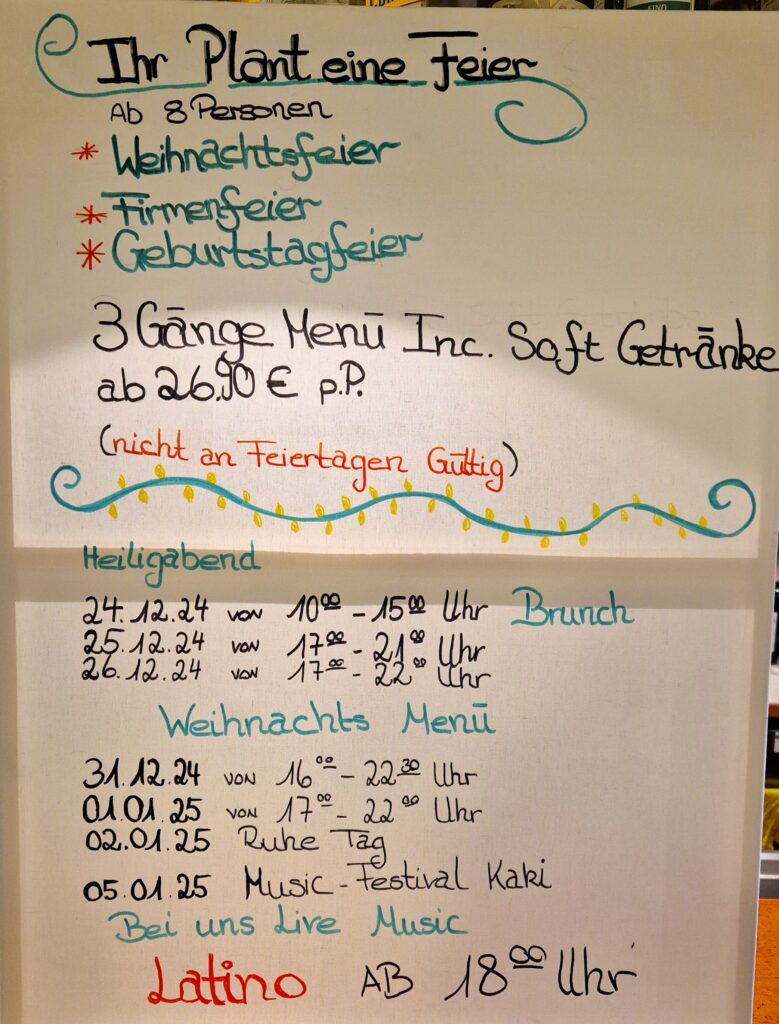 Ihr Plant eine Feier
Ab 8 Personen
* Weihnachtsfeier
* Firmenfeier
* Geburtstagfeier
3 Gänge Menü Inc. Soft Getränke
ab 26.90 € p.P.
(nicht an Feiertagen Gültig)
Heiligabend
24.12.24 von 10⁰⁰ - 15⁰⁰ Uhr Brunch
25.12.24 von 17⁰⁰ - 21⁰⁰ Uhr
26.12.24 von 17⁰⁰ - 22⁰⁰ Uhr
Weihnachts Menü
31.12.24 von 16⁰⁰ - 22³⁰ Uhr
01.01.25 von 17⁰⁰ - 22⁰⁰ Uhr
02.01.25 Ruhe Tag
05.01.25 Music-Festival Kaki
Bei uns Live Music
Latino AB 18⁰⁰ Uhr